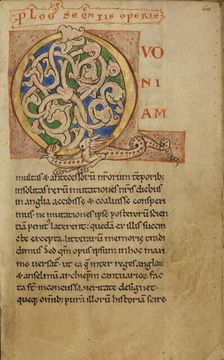 PLOG SEQENTIS OPERIS
QVO
NI
AM
multas & antecessorū nr̄orum temporib;
insolitas rerū mutationes nr̄is diebus
in anglia accidisse & coaluisse conspexi
mus. ne mutationes ipse posterorū scien
tiam penit᷒ laterent. quedā ex illis succin
cte excepta. litterarū memorię tradi
dimus. Sed qm̄ opus ipsum in hoc maxi
me uersat᷒. ut ea que inter reges anglorꝫ
& anselmū archiep̄m cantuariorꝫ fac
ta s̄t inconcussa ueritate designet.
queq; omib; purā illorum historiā scire